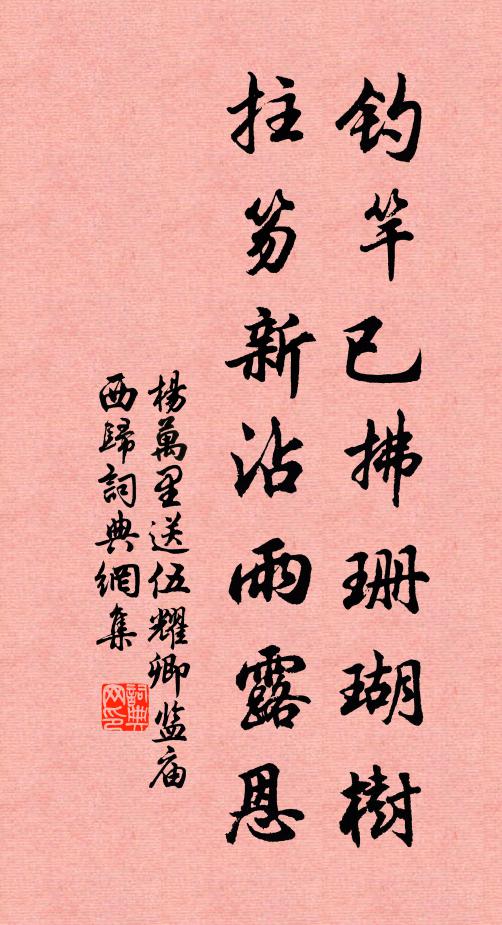 钓竿已拂珊瑚樹
拄笏新沾雨露恩
楊萬里送伍耀卿监庙
西歸詞典網集
詞典网印